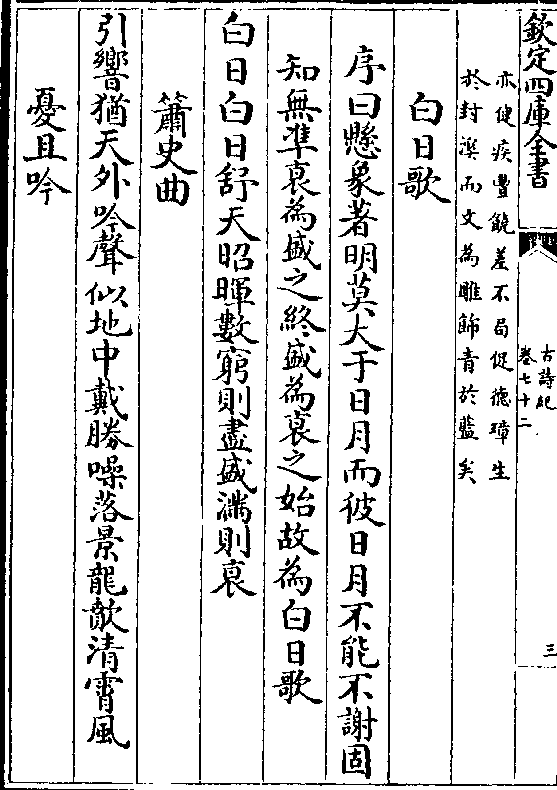 欽定四庫全書
古詩紀
卷七十二
三
亦健疾豐饒差不局促德璋生
於封溪而文為雕飾青於藍矣
白日歌
序曰懸象著明莫大于日月而彼日月不能不謝固
知無準衰為盛之終盛為衰之始故為白日歌
白日白日舒天昭暉數窮則盡盛滿則衰
簫史曲
引響猶天外吟聲似地中戴勝噪落景龍歕清霄風
憂且吟